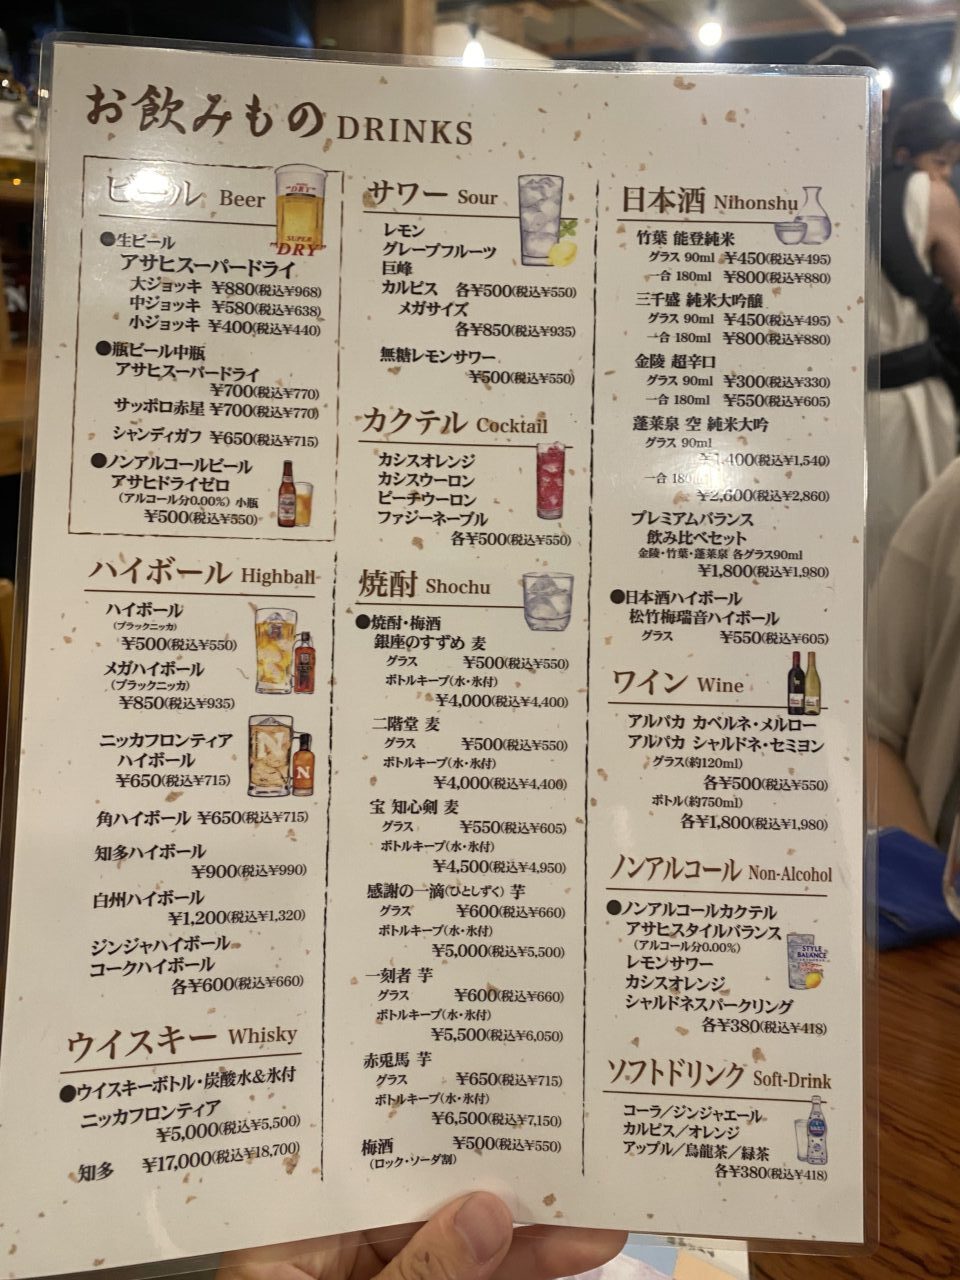 お飲みもの DRINKS
ビール Beer
●生ビール
アサヒスーパードライ
大ジョッキ ¥880(税込¥968)
中ジョッキ ¥580(税込¥638)
小ジョッキ ¥400(税込¥440)
●瓶ビール中瓶
アサヒスーパードライ
¥700(税込¥770)
サッポロ赤星 ¥700(税込¥770)
シャンディガフ ¥650(税込¥715)
●ノンアルコールビール
アサヒドライゼロ
(アルコール分0.00%) 小瓶
¥500(税込¥550)
"DRY"
SUPER
"DRY"
ハイボール Highball
ハイボール
(ブラックニッカ)
¥500(税込¥550)
メガハイボール
(ブラックニッカ)
¥850(税込¥935)
ニッカフロンティア
ハイボール
¥650(税込¥715)
N
N
角ハイボール ¥650(税込¥715)
知多ハイボール
¥900(税込¥990)
白州ハイボール
¥1,200(税込¥1,320)
ジンジャハイボール
コークハイボール
各¥600(税込¥660)
ウイスキー Whisky
●ウイスキーボトル・炭酸水&氷付
ニッカフロンティア
¥5,000(税込¥5,500)
知多 ¥17,000(税込¥18,700)
サワー Sour
レモン
グレープフルーツ
巨峰
カルピス 各¥500(税込¥550)
メガサイズ
各¥850(税込¥935)
無糖レモンサワー
¥500(税込¥550)
カクテル Cocktail
カシスオレンジ
カシスウーロン
ピーチウーロン
ファジーネーブル
各¥500(税込¥550)
焼酎 Shochu
●焼酎・梅酒
銀座のすずめ 麦
グラス ¥500(税込¥550)
ボトルキープ(水・氷付)
¥4,000(税込¥4,400)
二階堂 麦
グラス ¥500(税込¥550)
ボトルキープ(水・氷付)
¥4,000(税込¥4,400)
宝 知心剣 麦
グラス ¥550(税込¥605)
ボトルキープ(水・氷付)
¥4,500(税込¥4,950)
感謝の一滴(ひとしずく) 芋
グラス ¥600(税込¥660)
ボトルキープ(水・氷付)
¥5,000(税込¥5,500)
一刻者 芋
グラス ¥600(税込¥660)
ボトルキープ(水・氷付)
¥5,500(税込¥6,050)
赤兎馬 芋
グラス ¥650(税込¥715)
ボトルキープ(水・氷付)
¥6,500(税込¥7,150)
梅酒 ¥500(税込¥550)
(ロック・ソーダ割)
日本酒 Nihonshu
竹葉 能登純米
グラス 90ml ¥450(税込¥495)
一合 180ml ¥800(税込¥880)
三千盛 純米大吟醸
グラス 90ml ¥450(税込¥495)
一合 180ml ¥800(税込¥880)
金陵 超辛口
グラス 90ml ¥300(税込¥330)
一合 180ml ¥550(税込¥605)
蓬莱泉 空 純米大吟
グラス 90ml
¥1,400(税込¥1,540)
一合 180ml
¥2,600(税込¥2,860)
プレミアムバランス
飲み比べセット
金陵・竹葉・蓬莱泉 各グラス90ml
¥1,800(税込¥1,980)
●日本酒ハイボール
松竹梅瑞音ハイボール
グラス ¥550(税込¥605)
ワイン Wine
アルパカ カベルネ・メルロー
アルパカ シャルドネ・セミヨン
グラス(約120ml)
各¥500(税込¥550)
ボトル(約750ml)
各¥1,800(税込¥1,980)
ノンアルコール Non-Alcohol
●ノンアルコールカクテル
アサヒスタイルバランス
(アルコール分0.00%)
レモンサワー
カシスオレンジ
シャルドネスパークリング
各¥380(税込¥418)
STYLE
BALANCE
ソフトドリンク Soft-Drink
コーラ/ジンジャエール
カルピス/オレンジ
アップル/烏龍茶/緑茶
各¥380(税込¥418)